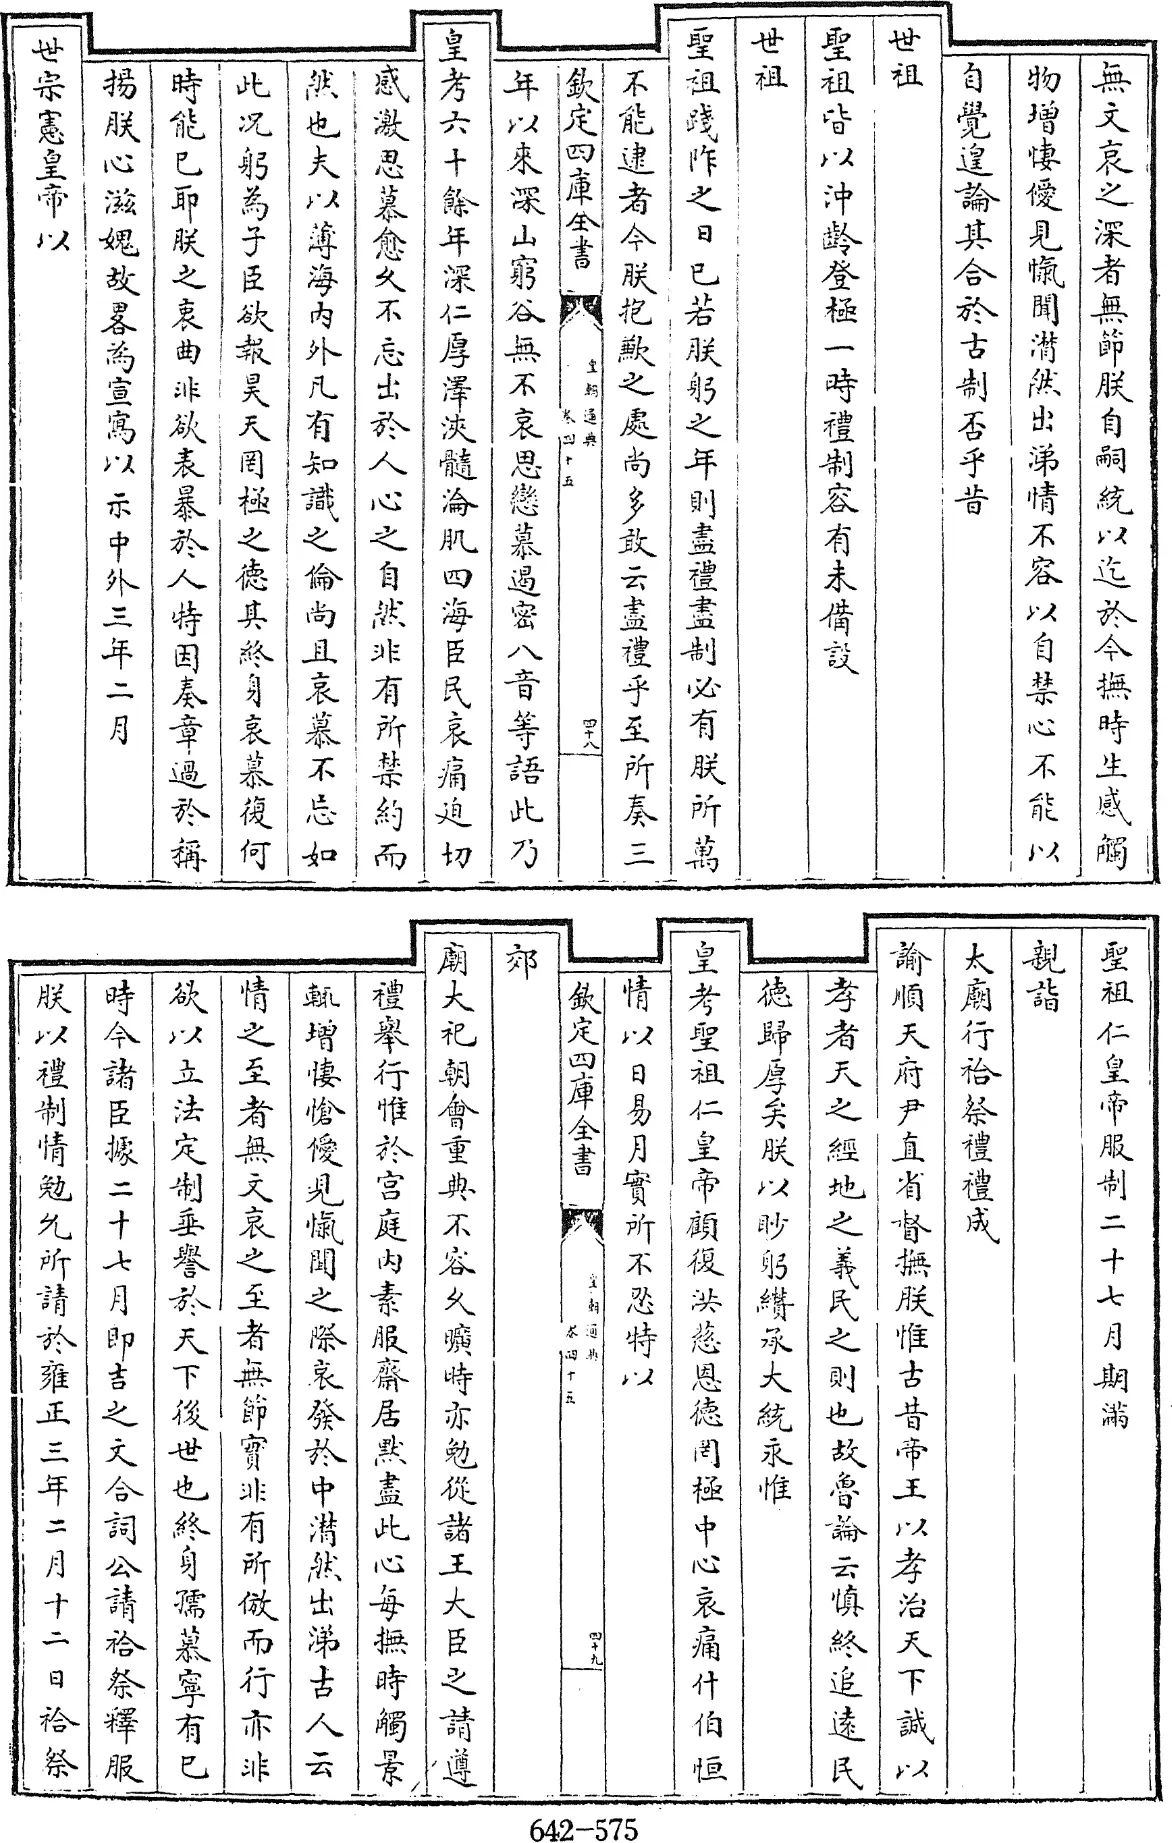 無文哀之深者無節朕自嗣統以迄於今撫時生感觸
物増悽僾見愾聞潸然出涕情不容以自禁心不能以
自覺遑論其合於古制否乎昔
世祖
聖祖皆以沖齡登極一時禮制容有未備設
世祖
聖祖踐阼之日已若朕躬之年則盡禮盡制必有朕所萬
不能逮者今朕抱歉之處尚多敢云盡禮乎至所奏三
欽定四庫全書
皇朝通典
卷四十五
四十八
年以來深山窮谷無不哀思戀慕遏密八音等語此乃
皇考六十餘年深仁厚澤浹髓淪肌四海臣民哀痛迫切
感激思慕愈久不忘出於人心之自然非有所禁約而
然也夫以薄海内外凡有知識之倫尚且哀慕不忘如
此况躬為子臣欲報昊天罔極之德其終身哀慕復何
時能已耶朕之衷曲非欲表暴於人特因奏章過於稱
揚朕心滋媿故畧為宣寫以示中外三年二月
世宗憲皇帝以
聖祖仁皇帝服制二十七月期滿
親詣
太廟行祫祭禮禮成
諭順天府尹直省督撫朕惟古昔帝王以孝治天下誠以
孝者天之經地之義民之則也故魯論云慎終追遠民
德歸厚矣朕以眇躬纘承大統永惟
皇考聖祖仁皇帝顧復洪慈恩德罔極中心哀痛什伯恒
情以日易月實所不忍特以
欽定四庫全書
皇朝通典
卷四十五
四十九
郊
廟大祀朝會重典不容久曠時亦勉從諸王大臣之請遵
禮舉行惟於宫庭内素服齋居黙盡此心每撫時觸景
輒増悽愴僾見愾聞之際哀發於中潸然出涕古人云
情之至者無文哀之至者無節實非有所倣而行亦非
欲以立法定制垂譽於天下後世也終身孺慕寧有已
時今諸臣據二十七月即吉之文合詞公請祫祭釋服
朕以禮制情勉允所請於雍正三年二月十二日祫祭
642-575